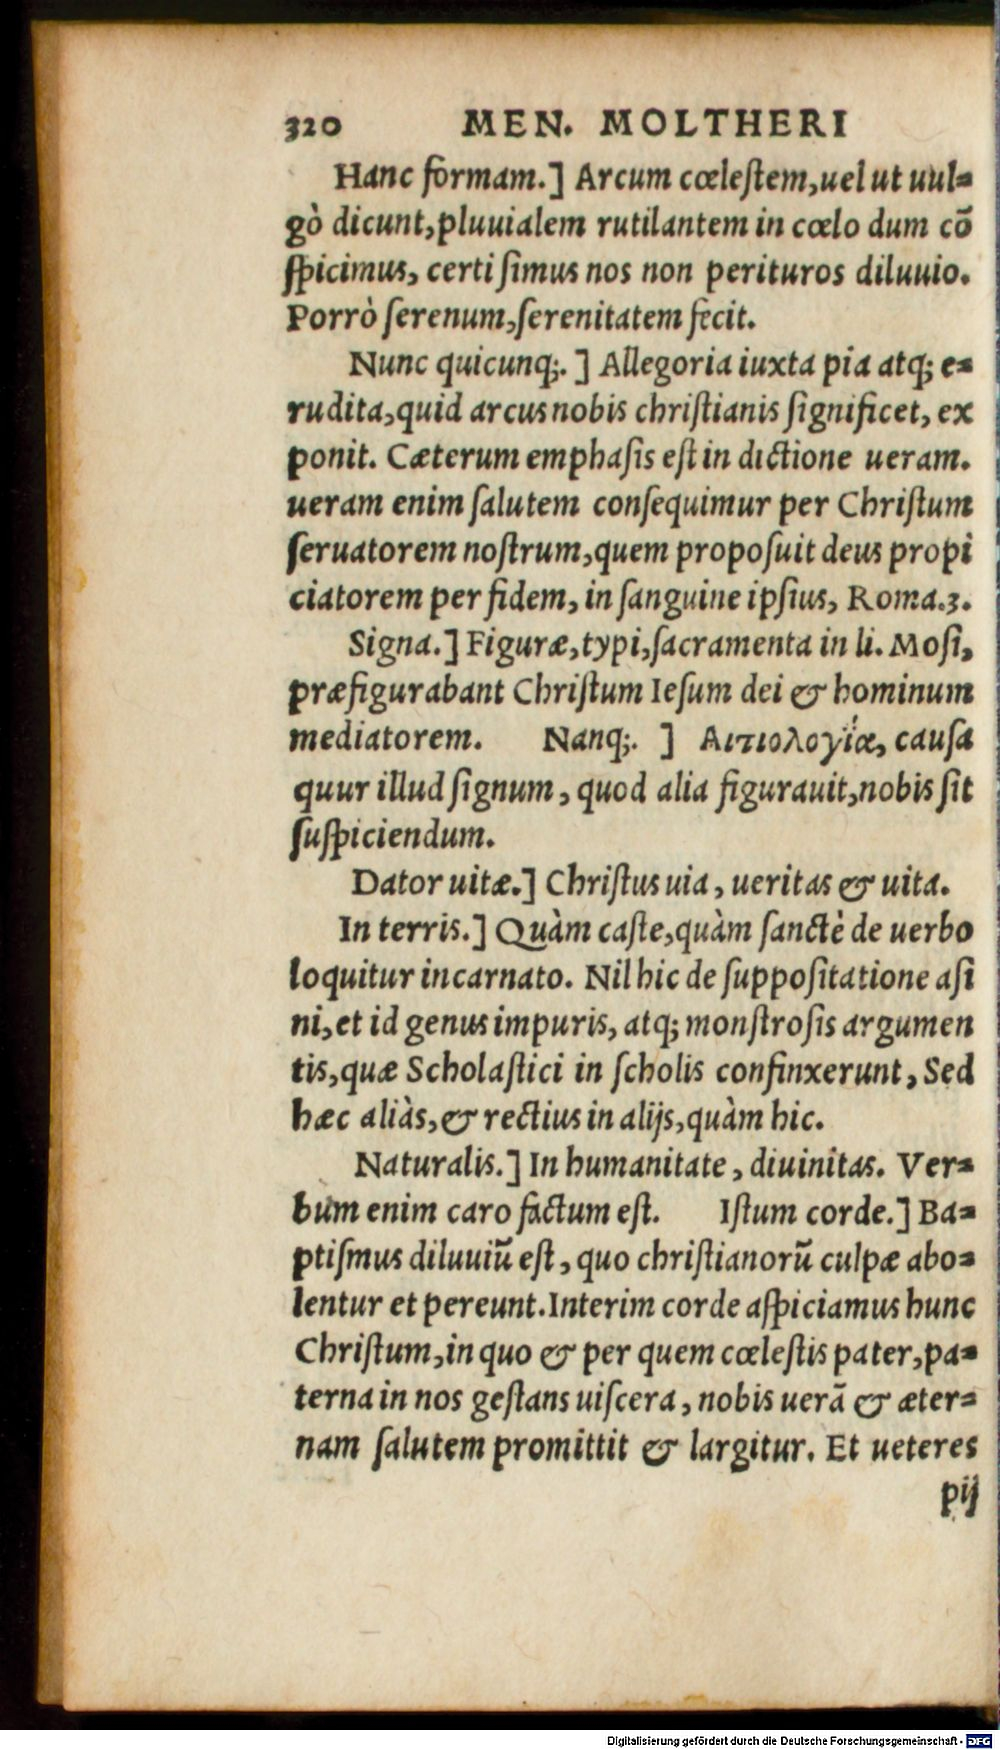 320 MEN. MOLTHERI
Hanc formam.] Arcum cœleſtem,uel ut uul-
gò dicunt,pluuialem rutilantem in cœlo dum cõ
ſpicimus, certi ſimus nos non perituros diluuio.
Porrò ſerenum,ſerenitatem fecit.
Nunc quicunq;.] Allegoria iuxta pia atq; e-
rudita,quid arcus nobis chriſtianis ſignificet, ex
ponit. Cæterum emphaſis eſt in dictione ueram.
ueram enim ſalutem conſequimur per Chriſtum
ſeruatorem noſtrum,quem propoſuit deus propi
ciatorem per fidem, in ſanguine ipſius, Roma.3.
Signa.] Figuræ,typi,ſacramenta in li. Moſi,
præfigurabant Chriſtum Ieſum dei & hominum
mediatorem. Nanq;. ] Αιτιολογΐα, cauſa
quur illud ſignum, quod alia figurauit,nobis ſit
ſuſpiciendum.
Dator uitæ.] Chriſtus uia, ueritas & uita.
In terris.] Quàm caſte,quàm ſanctè de uerbo
loquitur incarnato. Nil hic de ſuppoſitatione aſi
ni,et id genus impuris, atq; monſtroſis argumen
tis,quæ Scholaſtici in ſcholis confinxerunt, Sed
hæc aliàs,& rectius in alijs,quàm hic.
Naturalis.] In humanitate, diuinitas. Ver-
bum enim caro factum eſt. Iſtum corde.] Ba-
ptiſmus diluuiũ eſt, quo chriſtianorũ culpæ abo-
lentur et pereunt.Interim corde aſpiciamus hunc
Chriſtum,in quo & per quem cœleſtis pater,pa-
terna in nos geſtans uiſcera, nobis uerã & æter-
nam ſalutem promittit & largitur. Et ueteres
pij
Digitalisierung gefördert durch die Deutsche Forschungsgemeinschaft - DFG